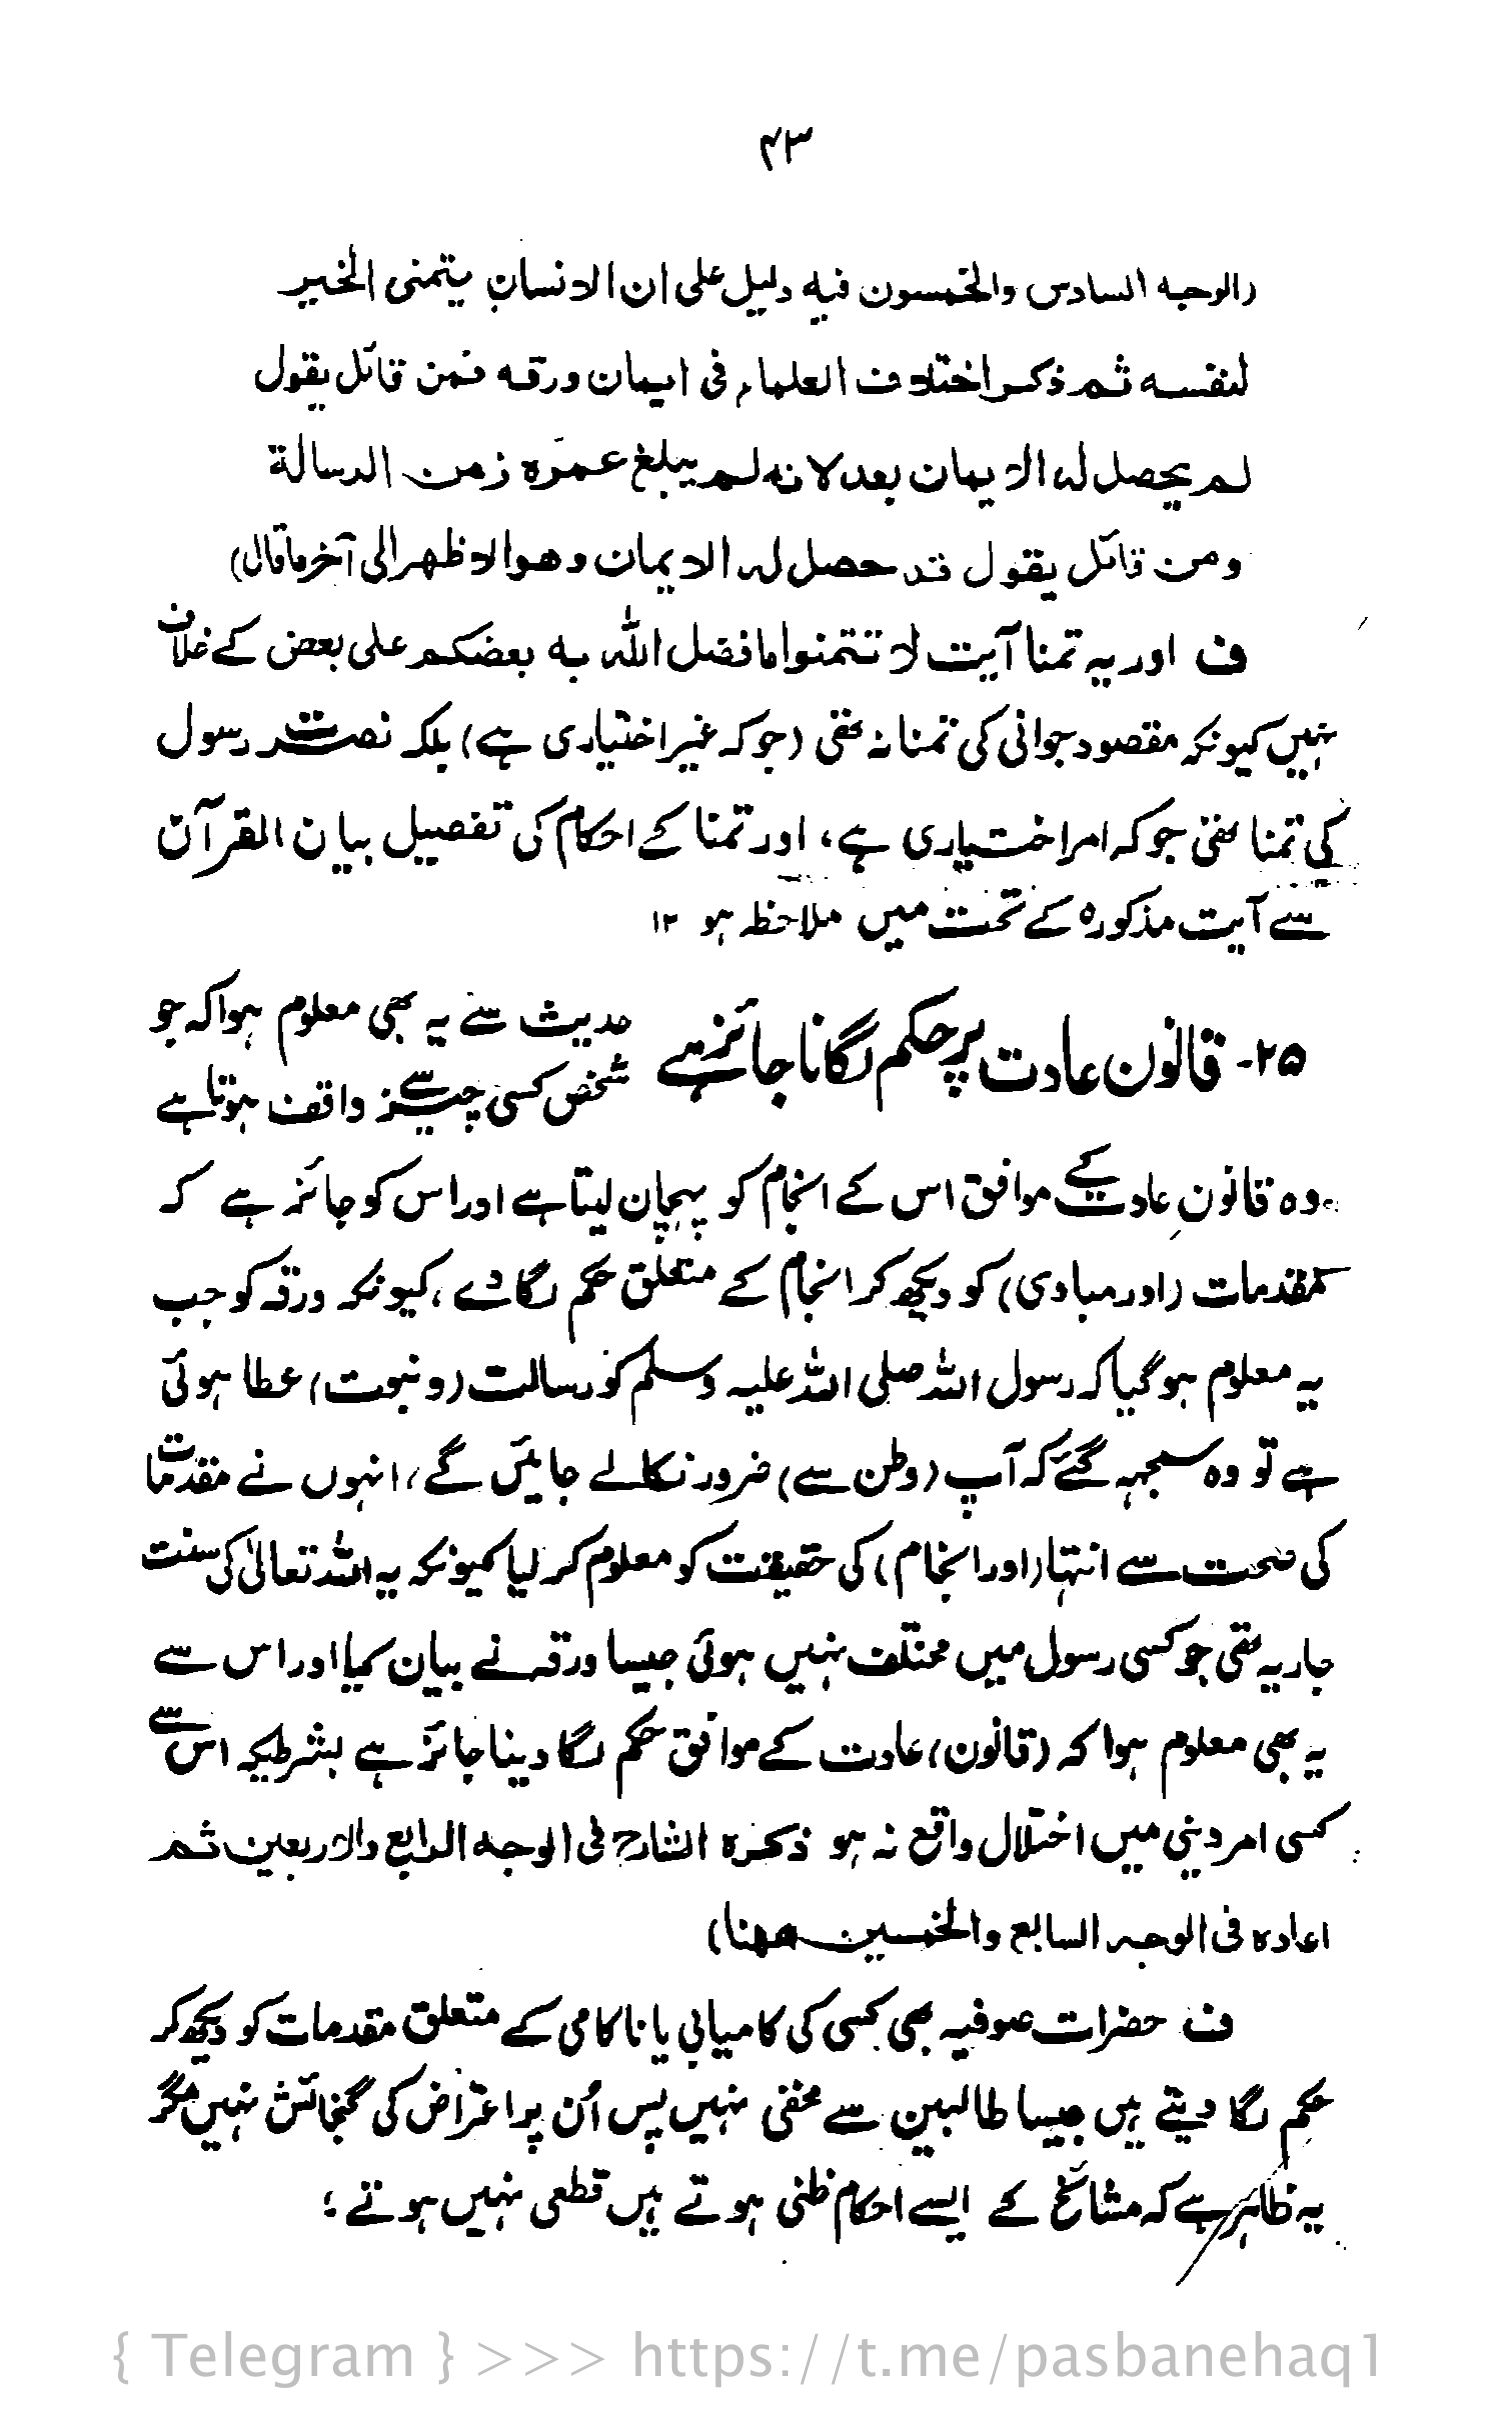 ۴۳
(الوجه السادس والخمسون فيه دليل على ان الانسان يتمنى الخير
لنفسه ثم ذكر اختلاف العلماء فى ايمان ورقه فمن قائل يقول
لم يحصل له الايمان بعد لانه لم يبلغ عمره زمن الرسالة
ومن قائل يقول قد حصل له الايمان وهو الاظهر الى آخر ماقال)
ف اور یہ تمنا آیت لا تتمنوا ما فضل الله به بعضكم على بعض کے خلاف
نہیں کیونکہ مقصود جوانی کی تمنا نہ تھی (جو کہ غیر اختیاری ہے) بلکہ نصرت رسول
کی تمنا تھی جو کہ امر اختیاری ہے، اور تمنا کے احکام کی تفصیل بیان القرآن
سے آیت مذکورہ کے تحت میں ملاحظہ ہو ۱۲
۲۵- قانون عادت پر حکم لگانا جائز ہے حدیث سے یہ بھی معلوم ہوا کہ جو
شخص کسی چیز سے واقف ہوتا ہے
وہ قانونِ عادت کے موافق اس کے انجام کو پہچان لیتا ہے اور اس کو جائز ہے کہ
مقدمات (اور مبادی) کو دیکھ کر انجام کے متعلق حکم لگا دے، کیونکہ ورقہ کو جب
یہ معلوم ہو گیا کہ رسول اللہ صلی اللہ علیہ وسلم کو رسالت (و نبوت) عطا ہوئی
ہے تو وہ سمجہہ گئے کہ آپ (وطن سے) ضرور نکالے جائیں گے، انہوں نے مقدمات
کی صحت سے انتہا (اور انجام) کی حقیقت کو معلوم کر لیا کیونکہ یہ اللہ تعالیٰ کی سنت
جاریہ تھی جو کسی رسول میں مختلف نہیں ہوئی جیسا ورقہ نے بیان کیا اور اس سے
یہ بھی معلوم ہوا کہ (قانون) عادت کے موافق حکم لگا دینا جائز ہے بشرطیکہ اس سے
کسی امر دینی میں اختلال واقع نہ ہو ذكره الشارح فى الوجه الرابع والاربعين ثم
اعاده فى الوجه السابع والخمسين ههنا)
ف حضرات صوفیہ بھی کسی کی کامیابی یا ناکامی کے متعلق مقدمات کو دیکھ کر
حکم لگا دیتے ہیں جیسا طالبین سے مخفی نہیں پس اُن پر اعتراض کی گنجائش نہیں مگر
یہ ظاہر ہے کہ مشائخ کے ایسے احکام ظنی ہوتے ہیں قطعی نہیں ہوتے ؛
{ Telegram } >>> https://t.me/pasbanehaq1